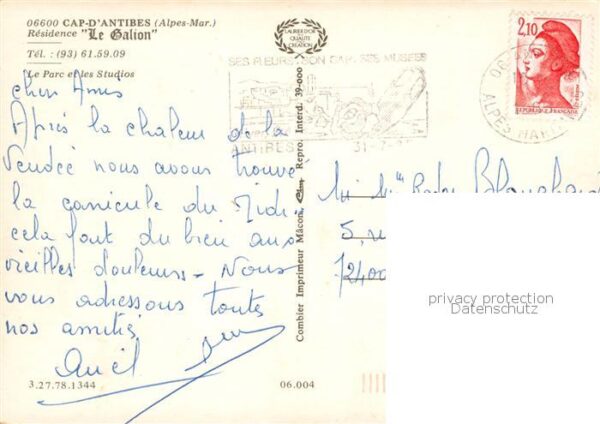 06600 CAP-D'ANTIBES (Alpes-Mar.)
Résidence "Le Galion"
Tél. : (93) 61.59.09
Le Parc et les Studios
LAURIER D'OR
DE LA
QUALITÉ
DE
CRÉATION
SES FLEURS SON SES MUSÉES
ANTIBES
31-7-
06
ALPES MARIT
2,10
RÉPUBLIQUE FRANÇAISE
Chers Amis
Après la chaleur de la
Vendée nous avons trouvé
la canicule du Midi
cela fait du bien aux
vieilles douleurs - Nous
vous adressons toutes
nos amitiés
Combier Imprimeur Mâcon, Repro. Interd. 39-000
Mr Mme Blanchard
5, rue
72400
privacy protection
Datenschutz
3.27.78.1344
06.004